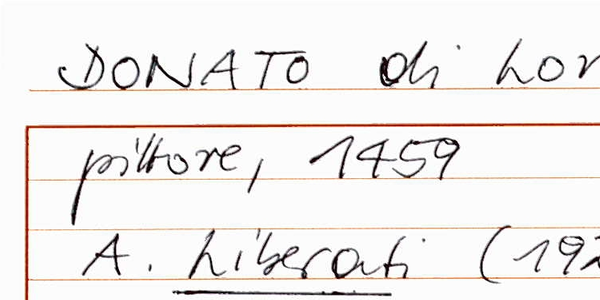 DONATO di Lor
pittore, 1459
A. Liberati (192